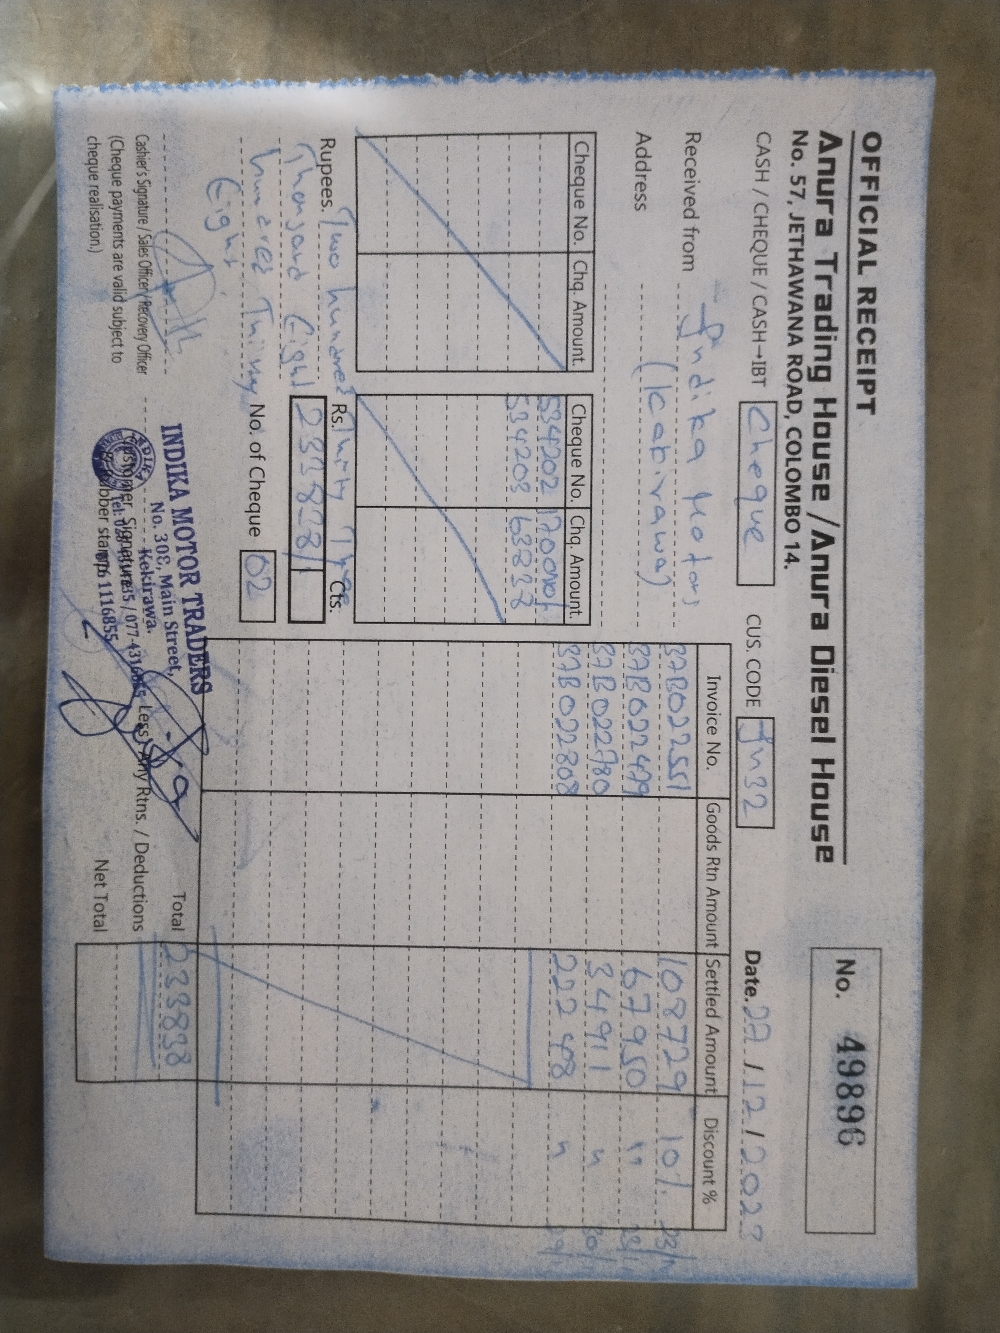 OFFICIAL RECEIPT
Anura Trading House / Anura Diesel House
No. 57, JETHAWANA ROAD, COLOMBO 14.
No. 49896
CASH / CHEQUE / CASH→IBT Cheque
CUS. CODE In32
Date. 27/12/2023
Received from Indika Motors
Address (Kekirawa)
Cheque No. Chq. Amount. Cheque No. Chq. Amount.
534202 170000/
534203 63838
Invoice No. Goods Rtn Amount Settled Amount Discount %
37B022551 108729 10%
37B022479 67950 "
37B022780 34911 "
37B022808 22248 "
Rupees. Two hundred Thirty Three
Thousand Eight
hundred Thirty
Eight.
Rs. Cts.
233838/
No. of Cheque 02
Total 233838
Less: Any Rtns. / Deductions
Net Total
Cashier's Signature / Sales Officer / Recovery Officer
(Cheque payments are valid subject to
cheque realisation.)
Customer Signature
Rubber stamp
INDIKA MOTOR TRADERS
No. 308, Main Street,
Kekirawa.
076 1116855